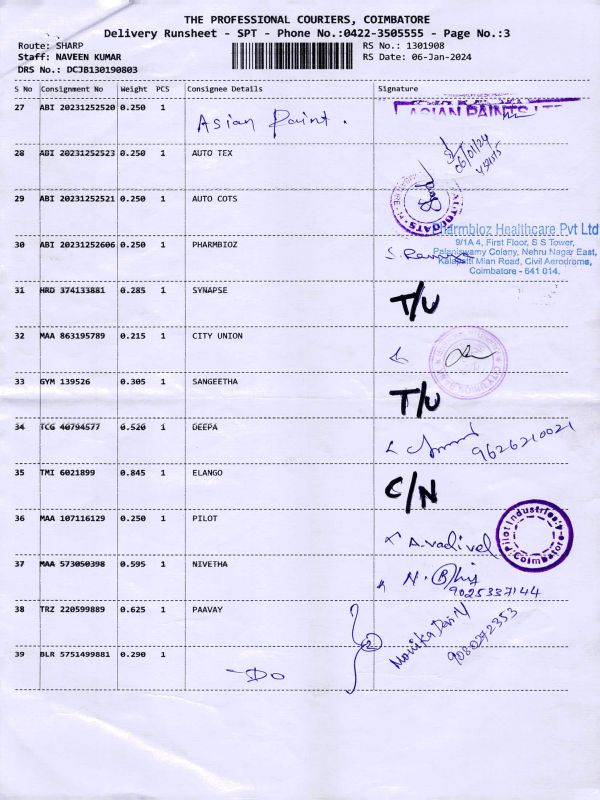 THE PROFESSIONAL COURIERS, COIMBATORE
Delivery Runsheet - SPT - Phone No.:0422-3505555 - Page No.:3
Route: SHARP
RS No.: 1301908
Staff: NAVEEN KUMAR
RS Date: 06-Jan-2024
DRS No.: DCJB130190803
S No Consignment No Weight PCS Consignee Details Signature
27 ABI 20231252520 0.250 1 Asian Paint. ASIAN PAINTS LTD
28 ABI 20231252523 0.250 1 AUTO TEX 06/01/24
29 ABI 20231252521 0.250 1 AUTO COTS
30 ABI 20231252606 0.250 1 PHARMBIOZ
Pharmbioz Healthcare Pvt Ltd
9/1A 4, First Floor, S S Tower,
Palaniswamy Colany, Nehru Nagar East,
Kalapatti Mian Road, Civil Aerodrome,
Coimbatore - 641 014.
31 HRD 374133881 0.285 1 SYNAPSE T/U
32 MAA 863195789 0.215 1 CITY UNION
33 GYM 139526 0.305 1 SANGEETHA T/U
34 TCG 40794577 0.520 1 DEEPA 9626210021
35 TMI 6021899 0.845 1 ELANGO C/N
36 MAA 107116129 0.250 1 PILOT A.vadivel Pilot Industries Coimbatore
37 MAA 573050398 0.595 1 NIVETHA
9025337144
38 TRZ 220599889 0.625 1 PAAVAY 2 Monika Devi M
9080272353
39 BLR 5751499881 0.290 1 -DO